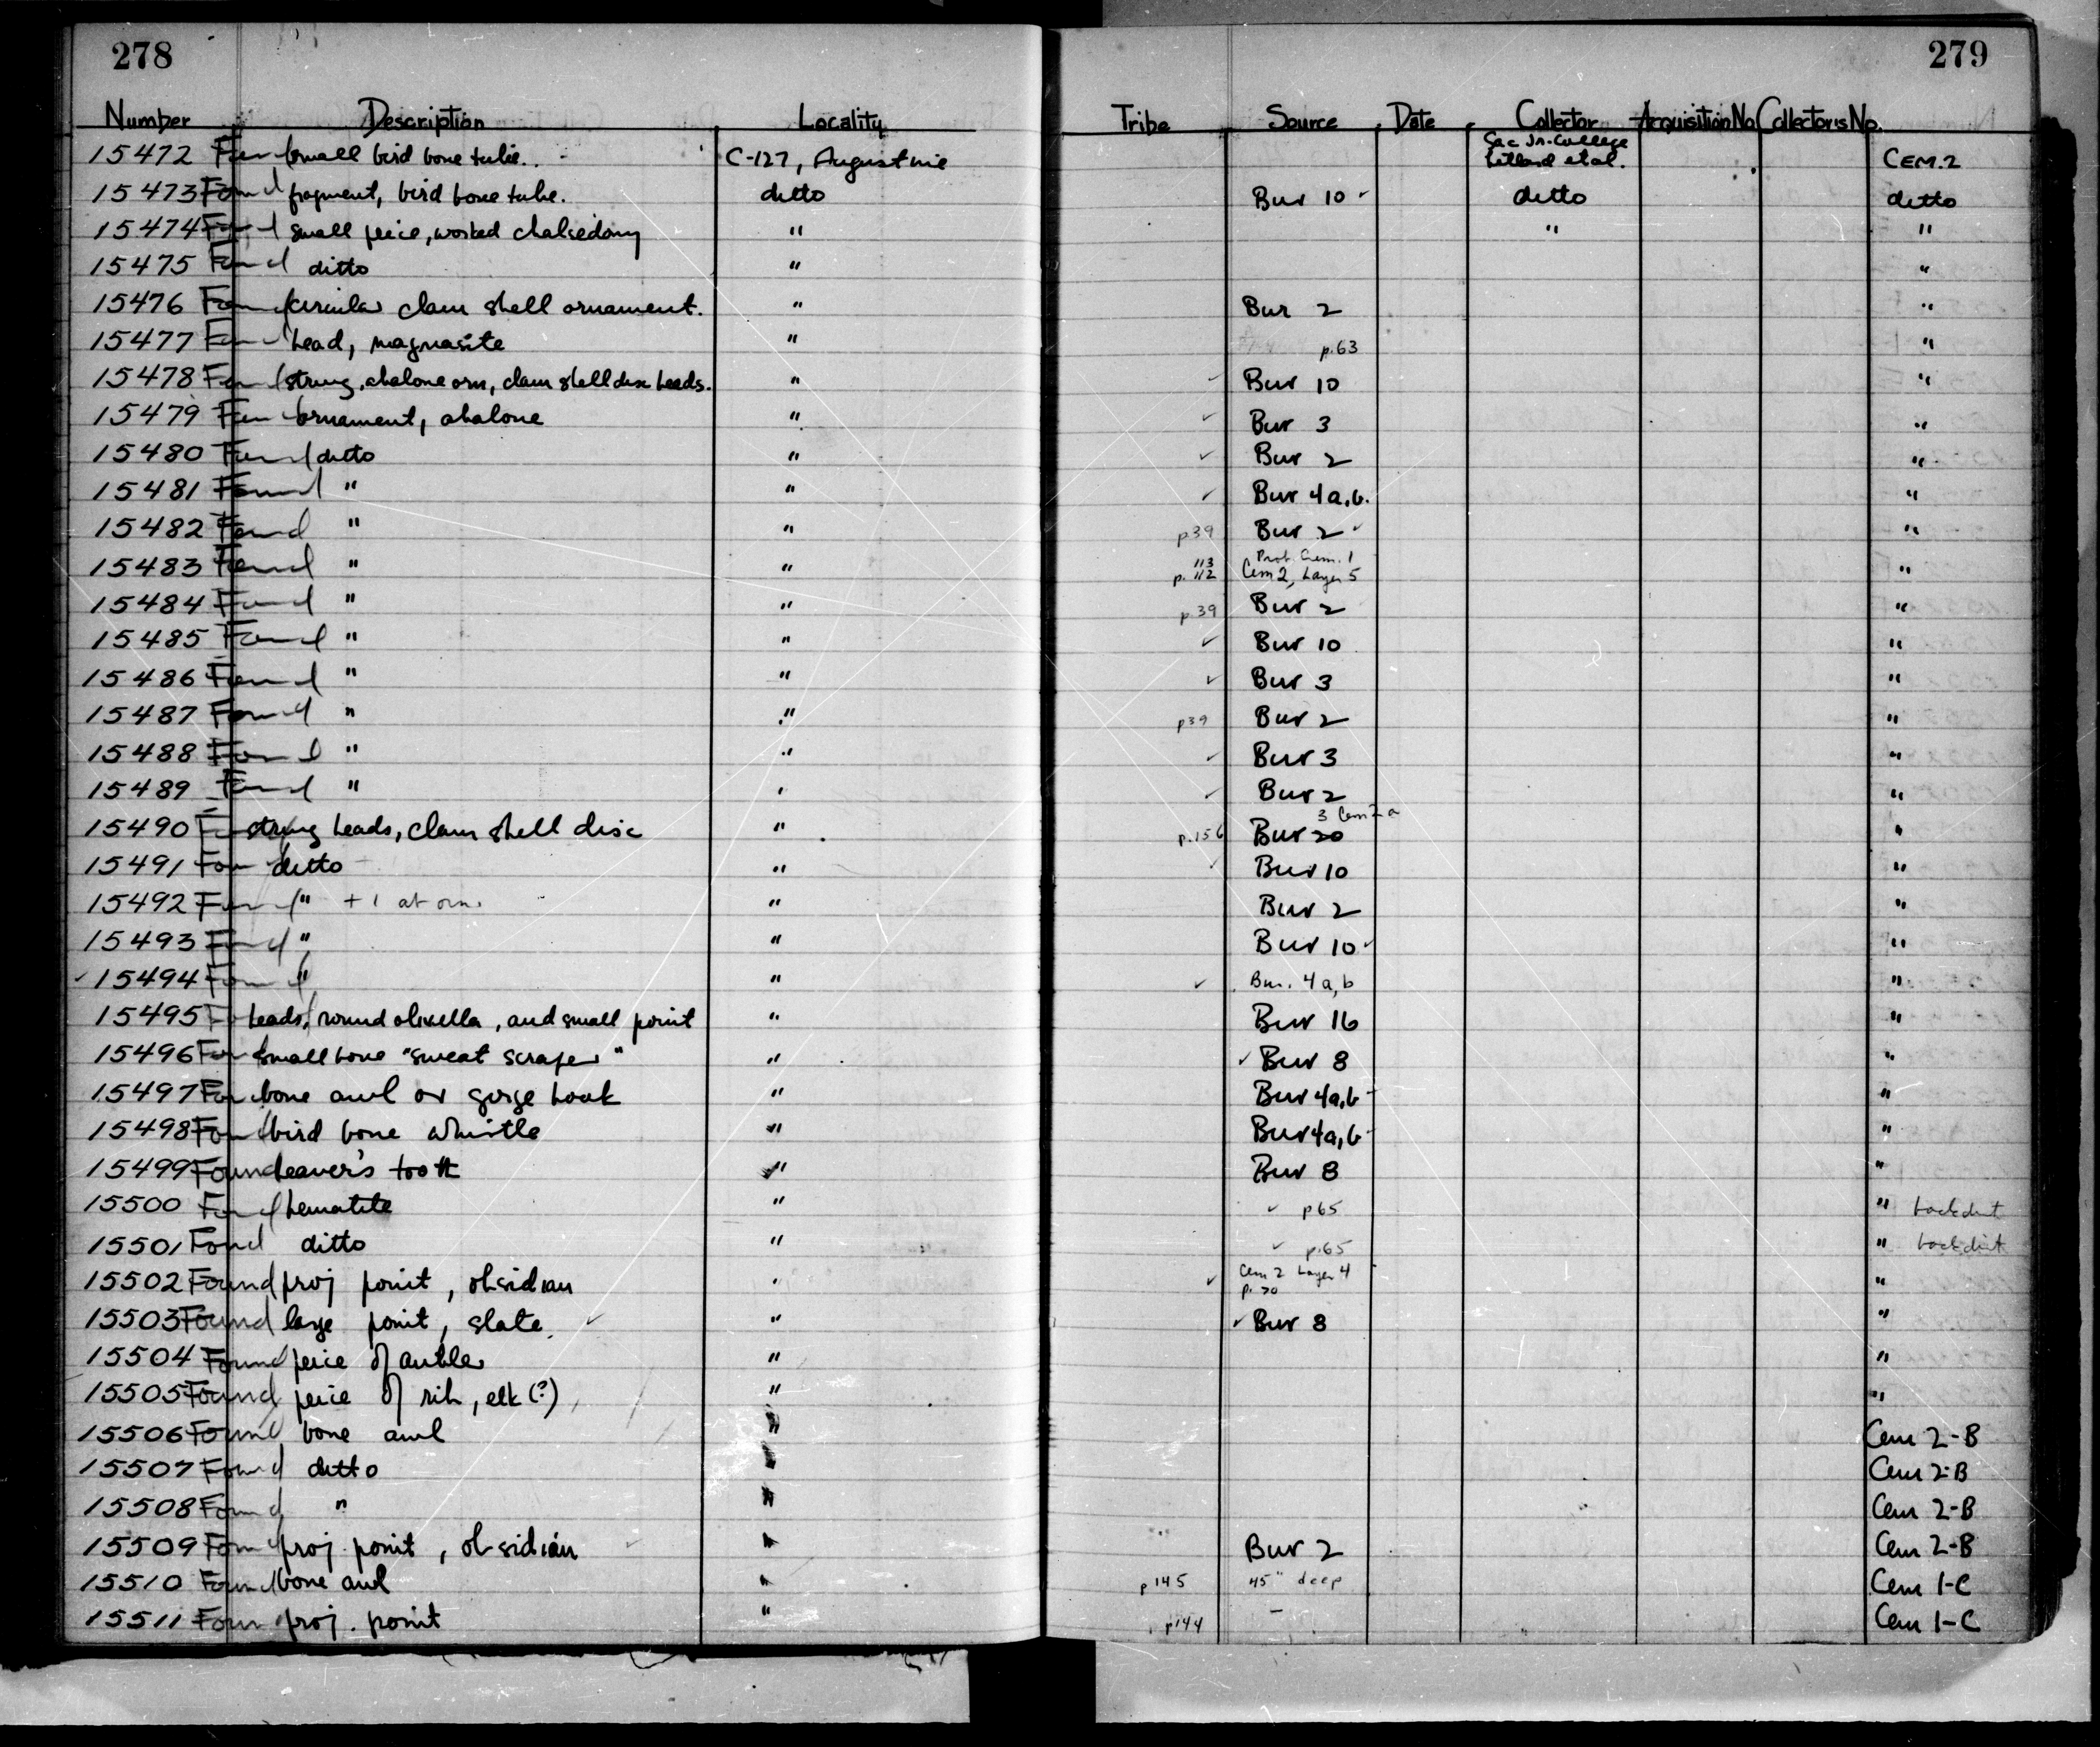 278 279
Number Description Locality Tribe Source Date Collector Acquisition No. Collector's No.
15472 Found small bird bone tube. C-127, Augustine Sac Jr. College Lilland et al. CEM. 2
15473 Found fragment, bird bone tube. ditto Bur 10 ✓ ditto ditto
15474 Found small peice, worked chalsedony " " "
15475 Found ditto " "
15476 Found circular clam shell ornament. " Bur 2 "
15477 Found bead, magnasite " p.63 "
15478 Found string, abalone orn, clam shell disc beads. " ✓ Bur 10 "
15479 Found ornament, abalone " ✓ Bur 3 "
15480 Found ditto " ✓ Bur 2 "
15481 Found " " ✓ Bur 4a,b. "
15482 Found " " p39 Bur 2 ✓ "
15483 Found " " 113 p. 112 Prob. Cem. 1 Cem 2, Layer 5 "
15484 Found " " p.39 Bur 2 "
15485 Found " " ✓ Bur 10 "
15486 Found " " ✓ Bur 3 "
15487 Found " " p39 Bur 2 "
15488 Found " " ✓ Bur 3 "
15489 Found " " ✓ Bur 2 "
15490 string beads, clam shell disc " p.156 Bur 20 3 Cem 2 a "
15491 Found ditto " ✓ Bur 10 "
15492 Found " + 1 ab orn. " Bur 2 "
15493 Found " " Bur 10 ✓ "
✓ 15494 Found " " ✓ Bur. 4a,b "
15495 beads, round olivella, and small point " Bur 16 "
15496 Found small bone "sweat scraper" " ✓ Bur 8 "
15497 Found bone awl or gorge hook " Bur 4a,b "
15498 Found bird bone whistle " Bur 4a,b "
15499 Found beaver's tooth " Bur 8 "
15500 Found hematite " ✓ p65 " backdirt
15501 Found ditto " ✓ p.65 " backdirt
15502 Found proj point, obsidian " ✓ Cem 2 Layer 4 p. 70 "
15503 Found large point, slate ✓ " ✓ Bur 8 "
15504 Found peice of antler " "
15505 Found peice of rib, elk (?) " "
15506 Found bone awl " Cem 2-B
15507 Found ditto " Cem 2-B
15508 Found " " Cem 2-B
15509 Found proj. point, obsidian " Bur 2 Cem 2-B
15510 Found bone awl " p145 45" deep Cem 1-C
15511 Found proj. point " p144 - Cem 1-C